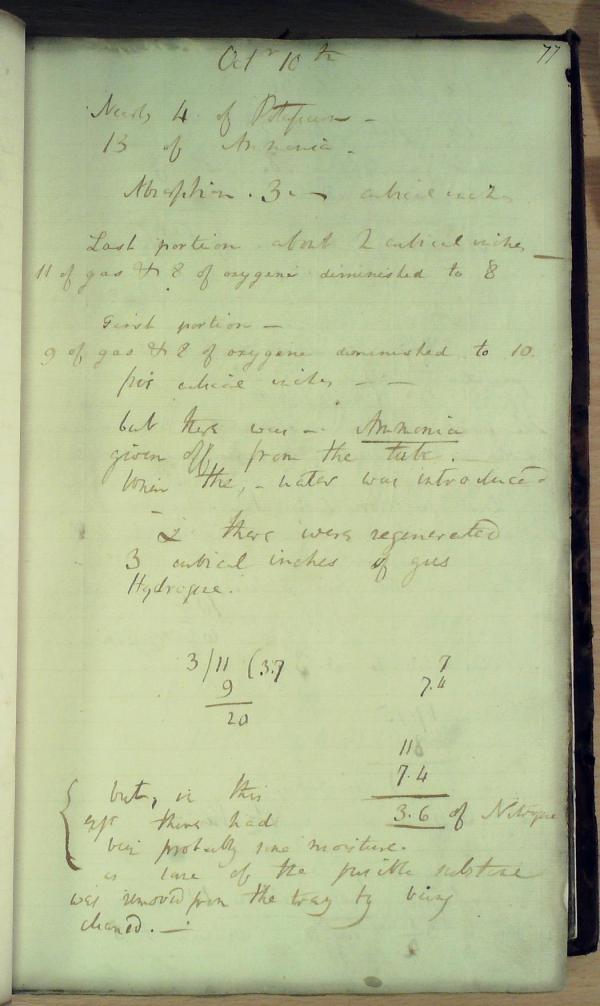 Octr 10th
77
Nearly 4 of Potassium -
13 of Ammonia -
Absorption . 3 cubical inches
Last portion about 2 cubical inches -
11 of gas & 8 of oxygene diminished to 8
First portion -
9 of gas & 8 of oxygene diminished to 10.
cubical inches - -
but there was - Ammonia
given off from the tube.
When the, - water was introduced
- & there were regenerated
3 cubical inches of gas
Hydrogene.
3/11 (3.7
9
20
7
7.4
11
7.4
3.6 of Nitrogene
but, in this
expt there had
been probably some moisture.
as some of the fusible substance
was removed from the tray by being
cleaned. -